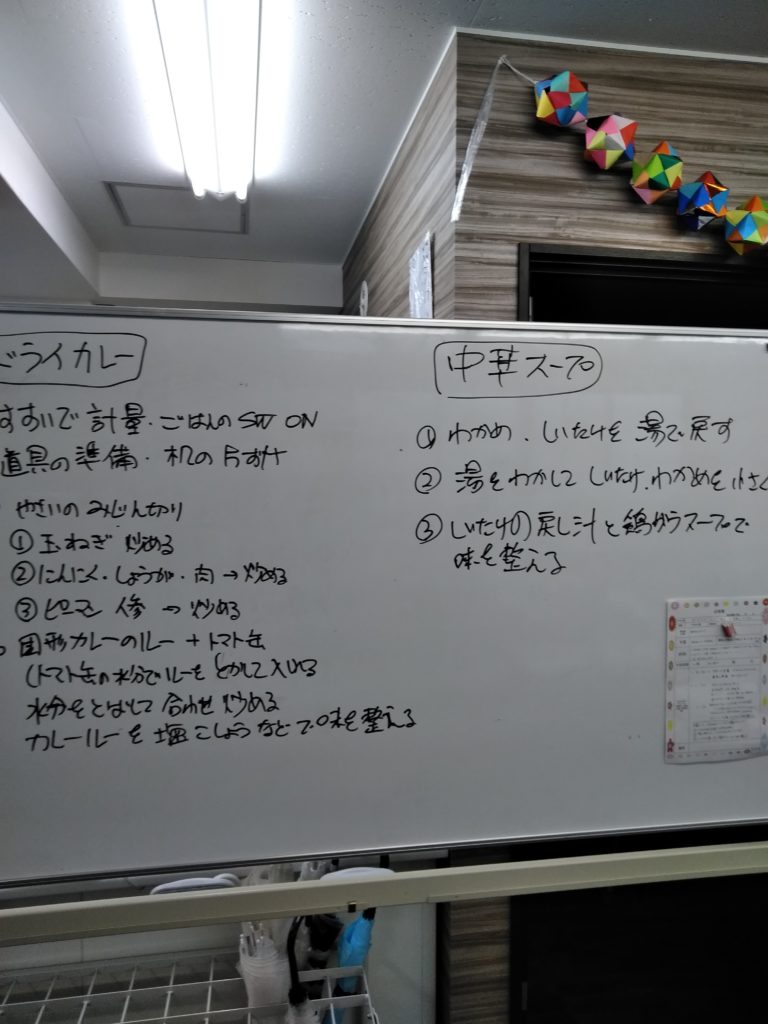 ドライカレー
すすいで 計量・ごはんのSW ON
道具の準備・机の片ずけ
やさいのみじん切り
①玉ねぎ 炒める
②にんにく・しょうが・肉→炒める
③ピーマン 人参 → 炒める
固形カレーのルー + トマト缶
(トマト缶の水分でルーをとかして入れる
水分をとばして 合わせ 炒める
カレールーを 塩こしょうなどで味を整える
中華スープ
① わかめ、しいたけを 湯で戻す
② 湯をわかして しいたけ、わかめを 小さく
③ しいたけの戻し汁と鶏がらスープで
味を整える